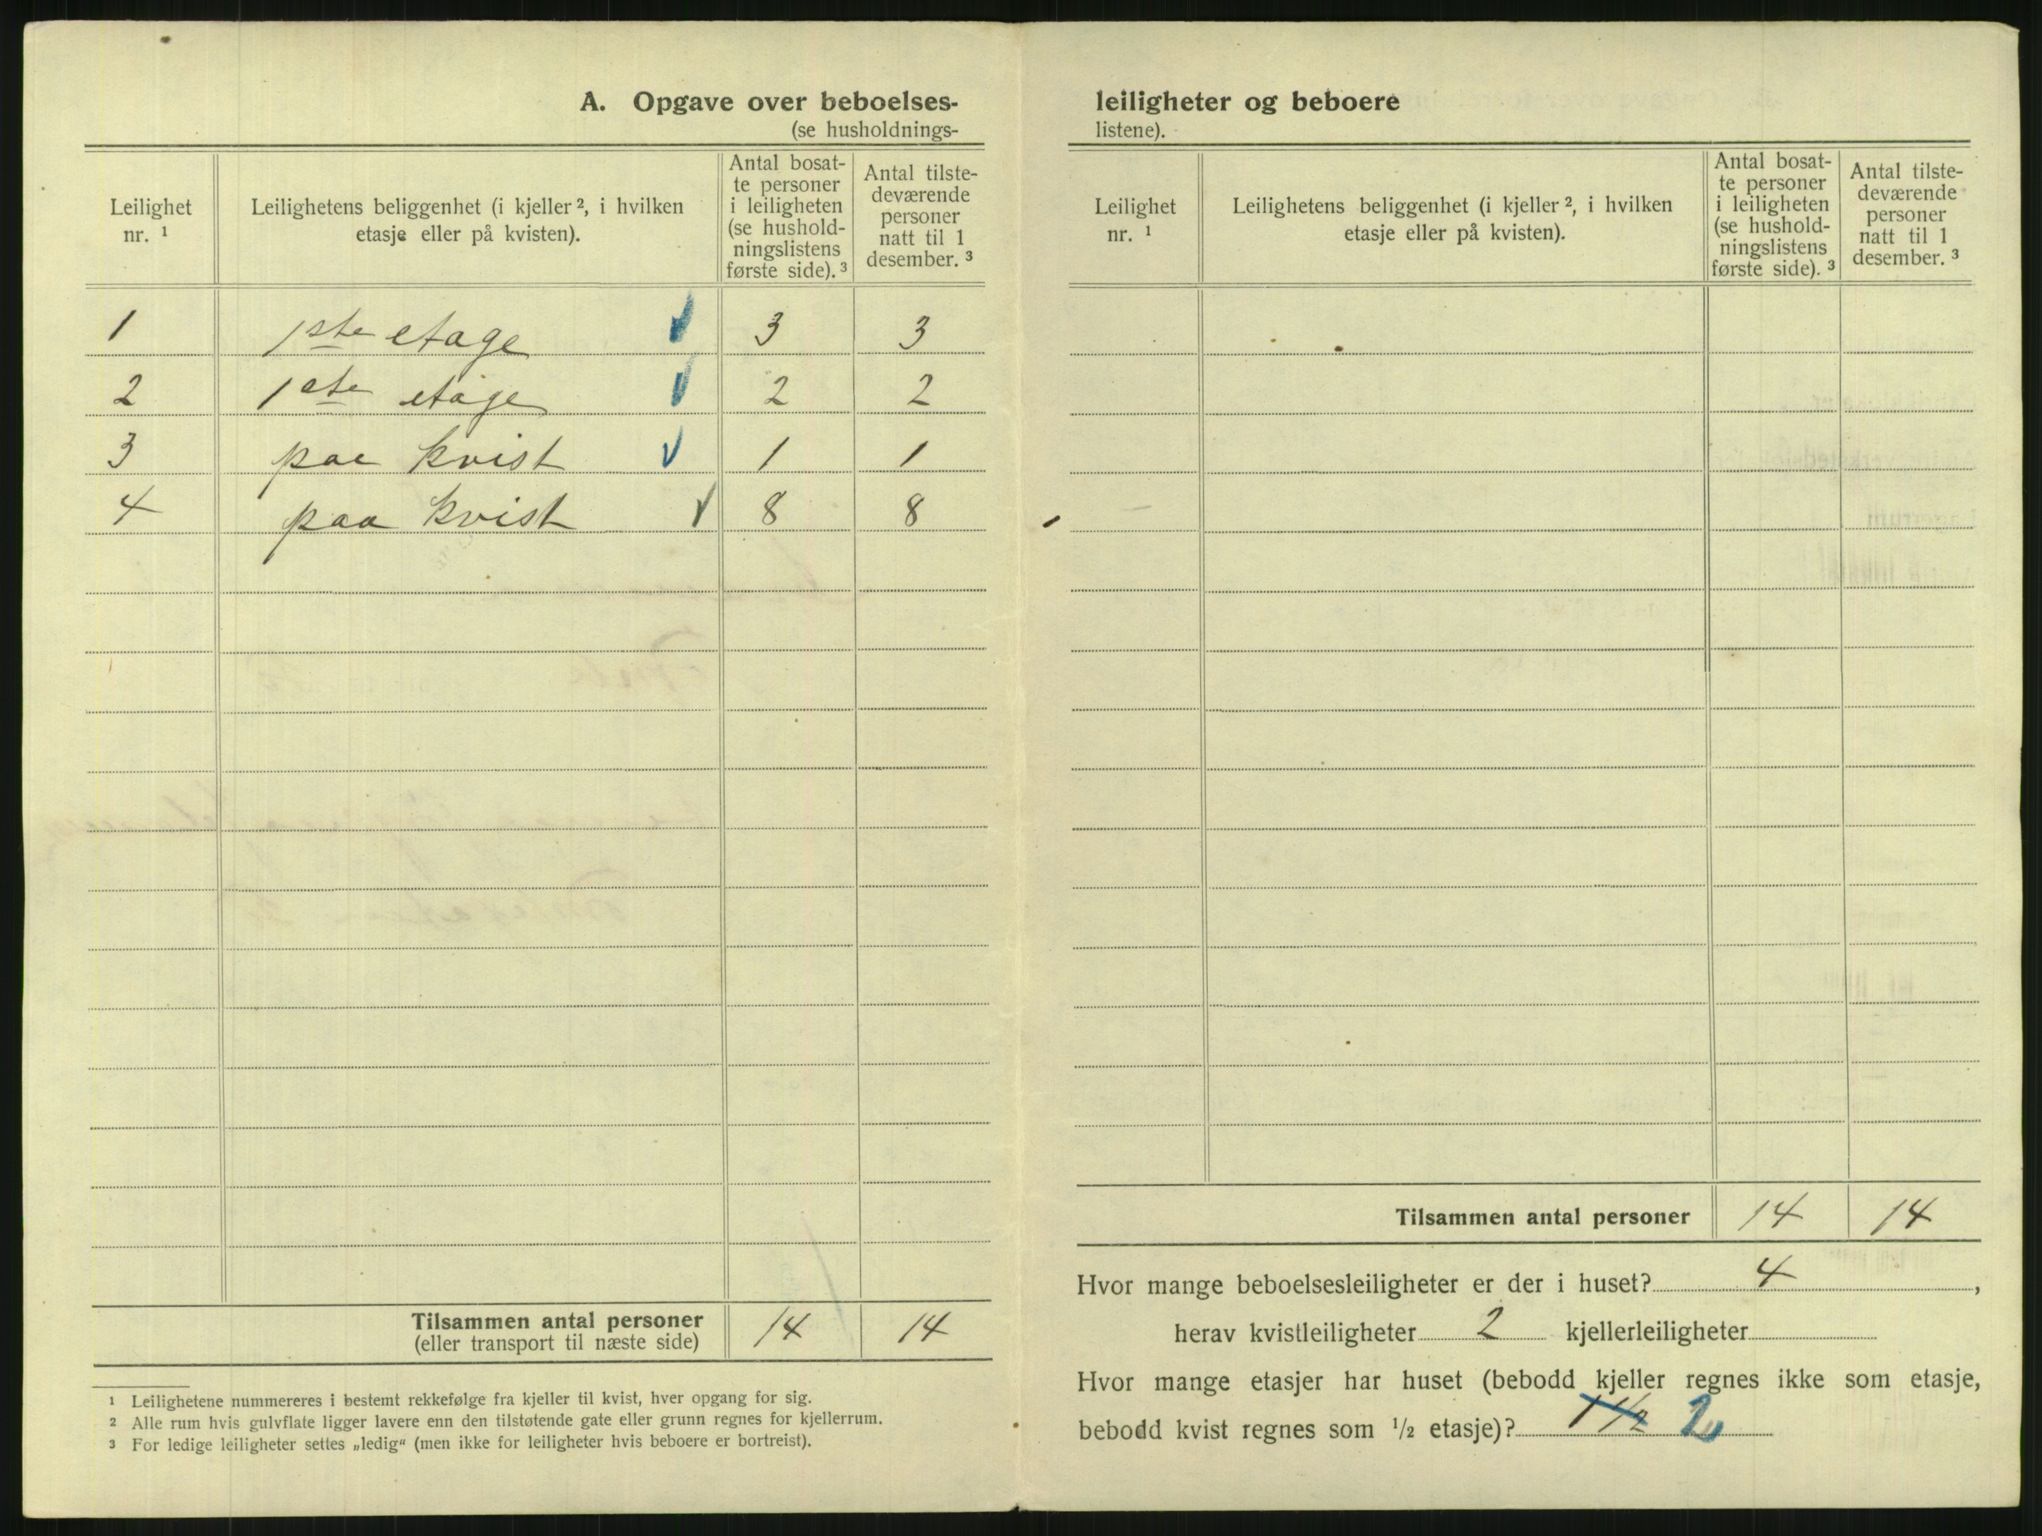 A. Opgave over beboelses-
(se husholdnings-
Leilighet
nr. ¹
Leilighetens beliggenhet (i kjeller ², i hvilken
etasje eller på kvisten).
Antal bosat-
te personer
i leiligheten
(se hushold-
ningslistens
første side). ³
Antal tilste-
deværende
personer
natt til 1
desember. ³
1 1ste etage 3 3
2 1ste etage 2 2
3 paa kvist 1 1
4 paa kvist 8 8
Tilsammen antal personer
(eller transport til næste side) 14 14
¹ Leilighetene nummereres i bestemt rekkefølge fra kjeller til kvist, hver opgang for sig.
² Alle rum hvis gulvflate ligger lavere enn den tilstøtende gate eller grunn regnes for kjellerrum.
³ For ledige leiligheter settes „ledig“ (men ikke for leiligheter hvis beboere er bortreist).
leiligheter og beboere
listene).
Leilighet
nr. ¹
Leilighetens beliggenhet (i kjeller ², i hvilken
etasje eller på kvisten).
Antal bosat-
te personer
i leiligheten
(se hushold-
ningslistens
første side). ³
Antal tilste-
deværende
personer
natt til 1
desember. ³
Tilsammen antal personer 14 14
Hvor mange beboelsesleiligheter er der i huset? 4 ,
herav kvistleiligheter 2 kjellerleiligheter
Hvor mange etasjer har huset (bebodd kjeller regnes ikke som etasje,
bebodd kvist regnes som ½ etasje)? 1 ½ 2